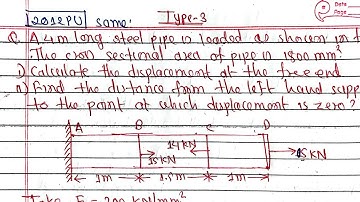 Date
Page
2012PU some. Type-3
Q. A 4m long steel pipe is loaded as shown in f
The cross sectional area of pipe is 1800 mm²
i) Calculate the displacement at the free end
ii) Find the distance from the left hand supp
to the point at which displacement is zero?
A B C D
14KN
15KN 15 KN
1m 1.5m 1m
Take E = 200 KN/mm²